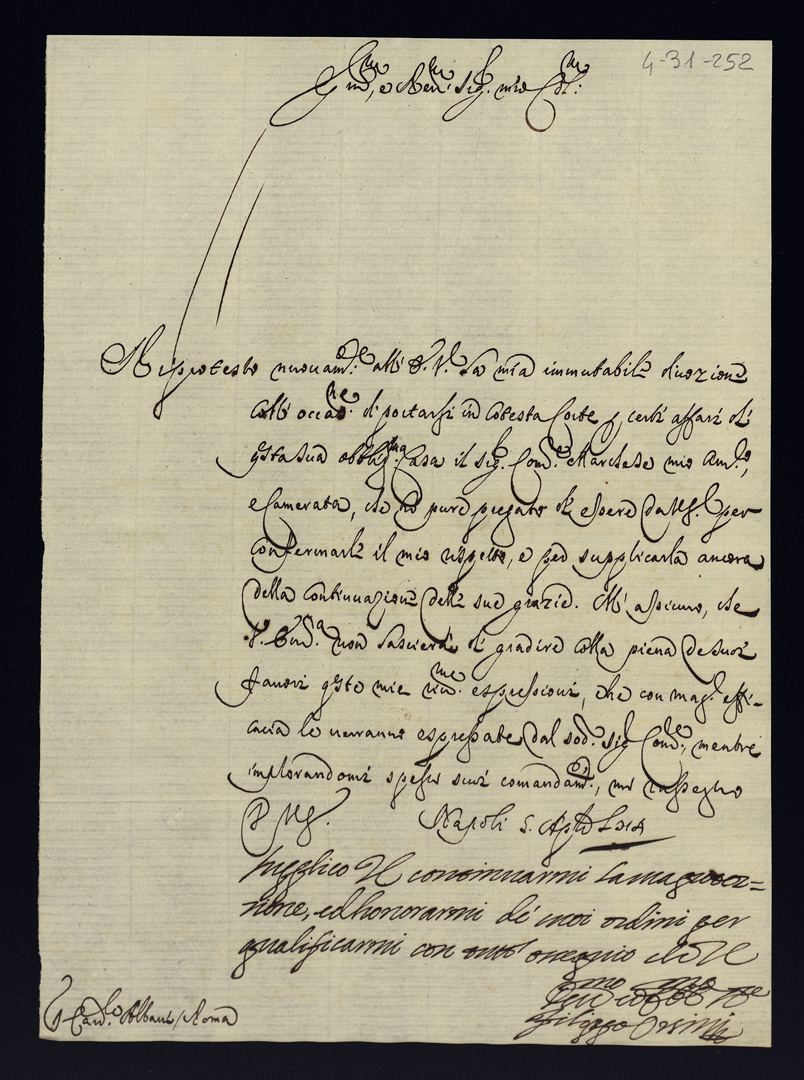 4-31-252
Em.mo, e Rev.mo Sig.r mio Col.mo
Riprotesto nuovam.te all' E. V. la mia immutabile divozione
coll' occas.ne di portarsi in cotesta Corte p certi affari di
q.sta sua obblig.ma Casa il Sig.r Com.e Marchese mio Am.co,
e Camerata, che hò pure pregato di essere da V.E. per
confermarle il mio rispetto, e per supplicarla ancora
della continuazione delle sue grazie. M' assicuro, che
V. Em.za non lascierà di gradire colla piena de suoi
favori q.ste mie riv.me espressioni, che con mag.r effi-
cacia le verranno espressate dal sod.o Sig.r Com.e, mentre
implorandomi spesso suoi comandam.ti, mi rassegno
D V.E. Napoli
supplico VE continuarmi la sua protez=
ione, ed honorarmi de suoi ordini per
qualificarmi con tutto ossequio di VE
Filippo Orsini
Card.le Albani / Roma